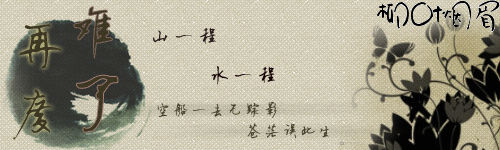 再度
难了
山一程
水一程
空船一去无踪影
苍茫误此生
柳烟眉